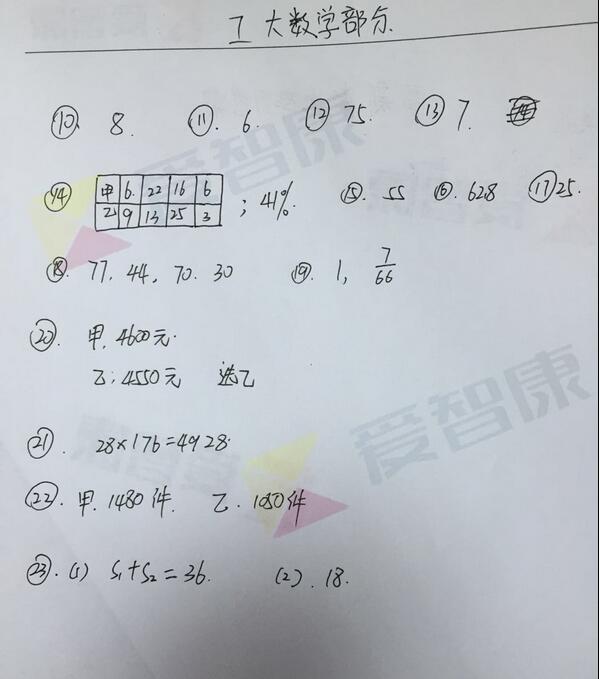 工大数学部分
⑩ 8. ⑪. 6. ⑫ 75. ⑬ 7.
⑭ 甲 6. 22 16 6 ; 41%. ⑮. 55 ⑯. 628 ⑰ 25.
乙 9 13 25 3
⑱. 77. 44, 70. 30 ⑲. 1, 7/66
⑳. 甲. 4600元.
乙: 4550元 选乙
㉑. 28×176=4928.
㉒. 甲. 1480件. 乙. 1080件
㉓. (1) S₁+S₂=36. (2). 18.
爱智康
爱智康